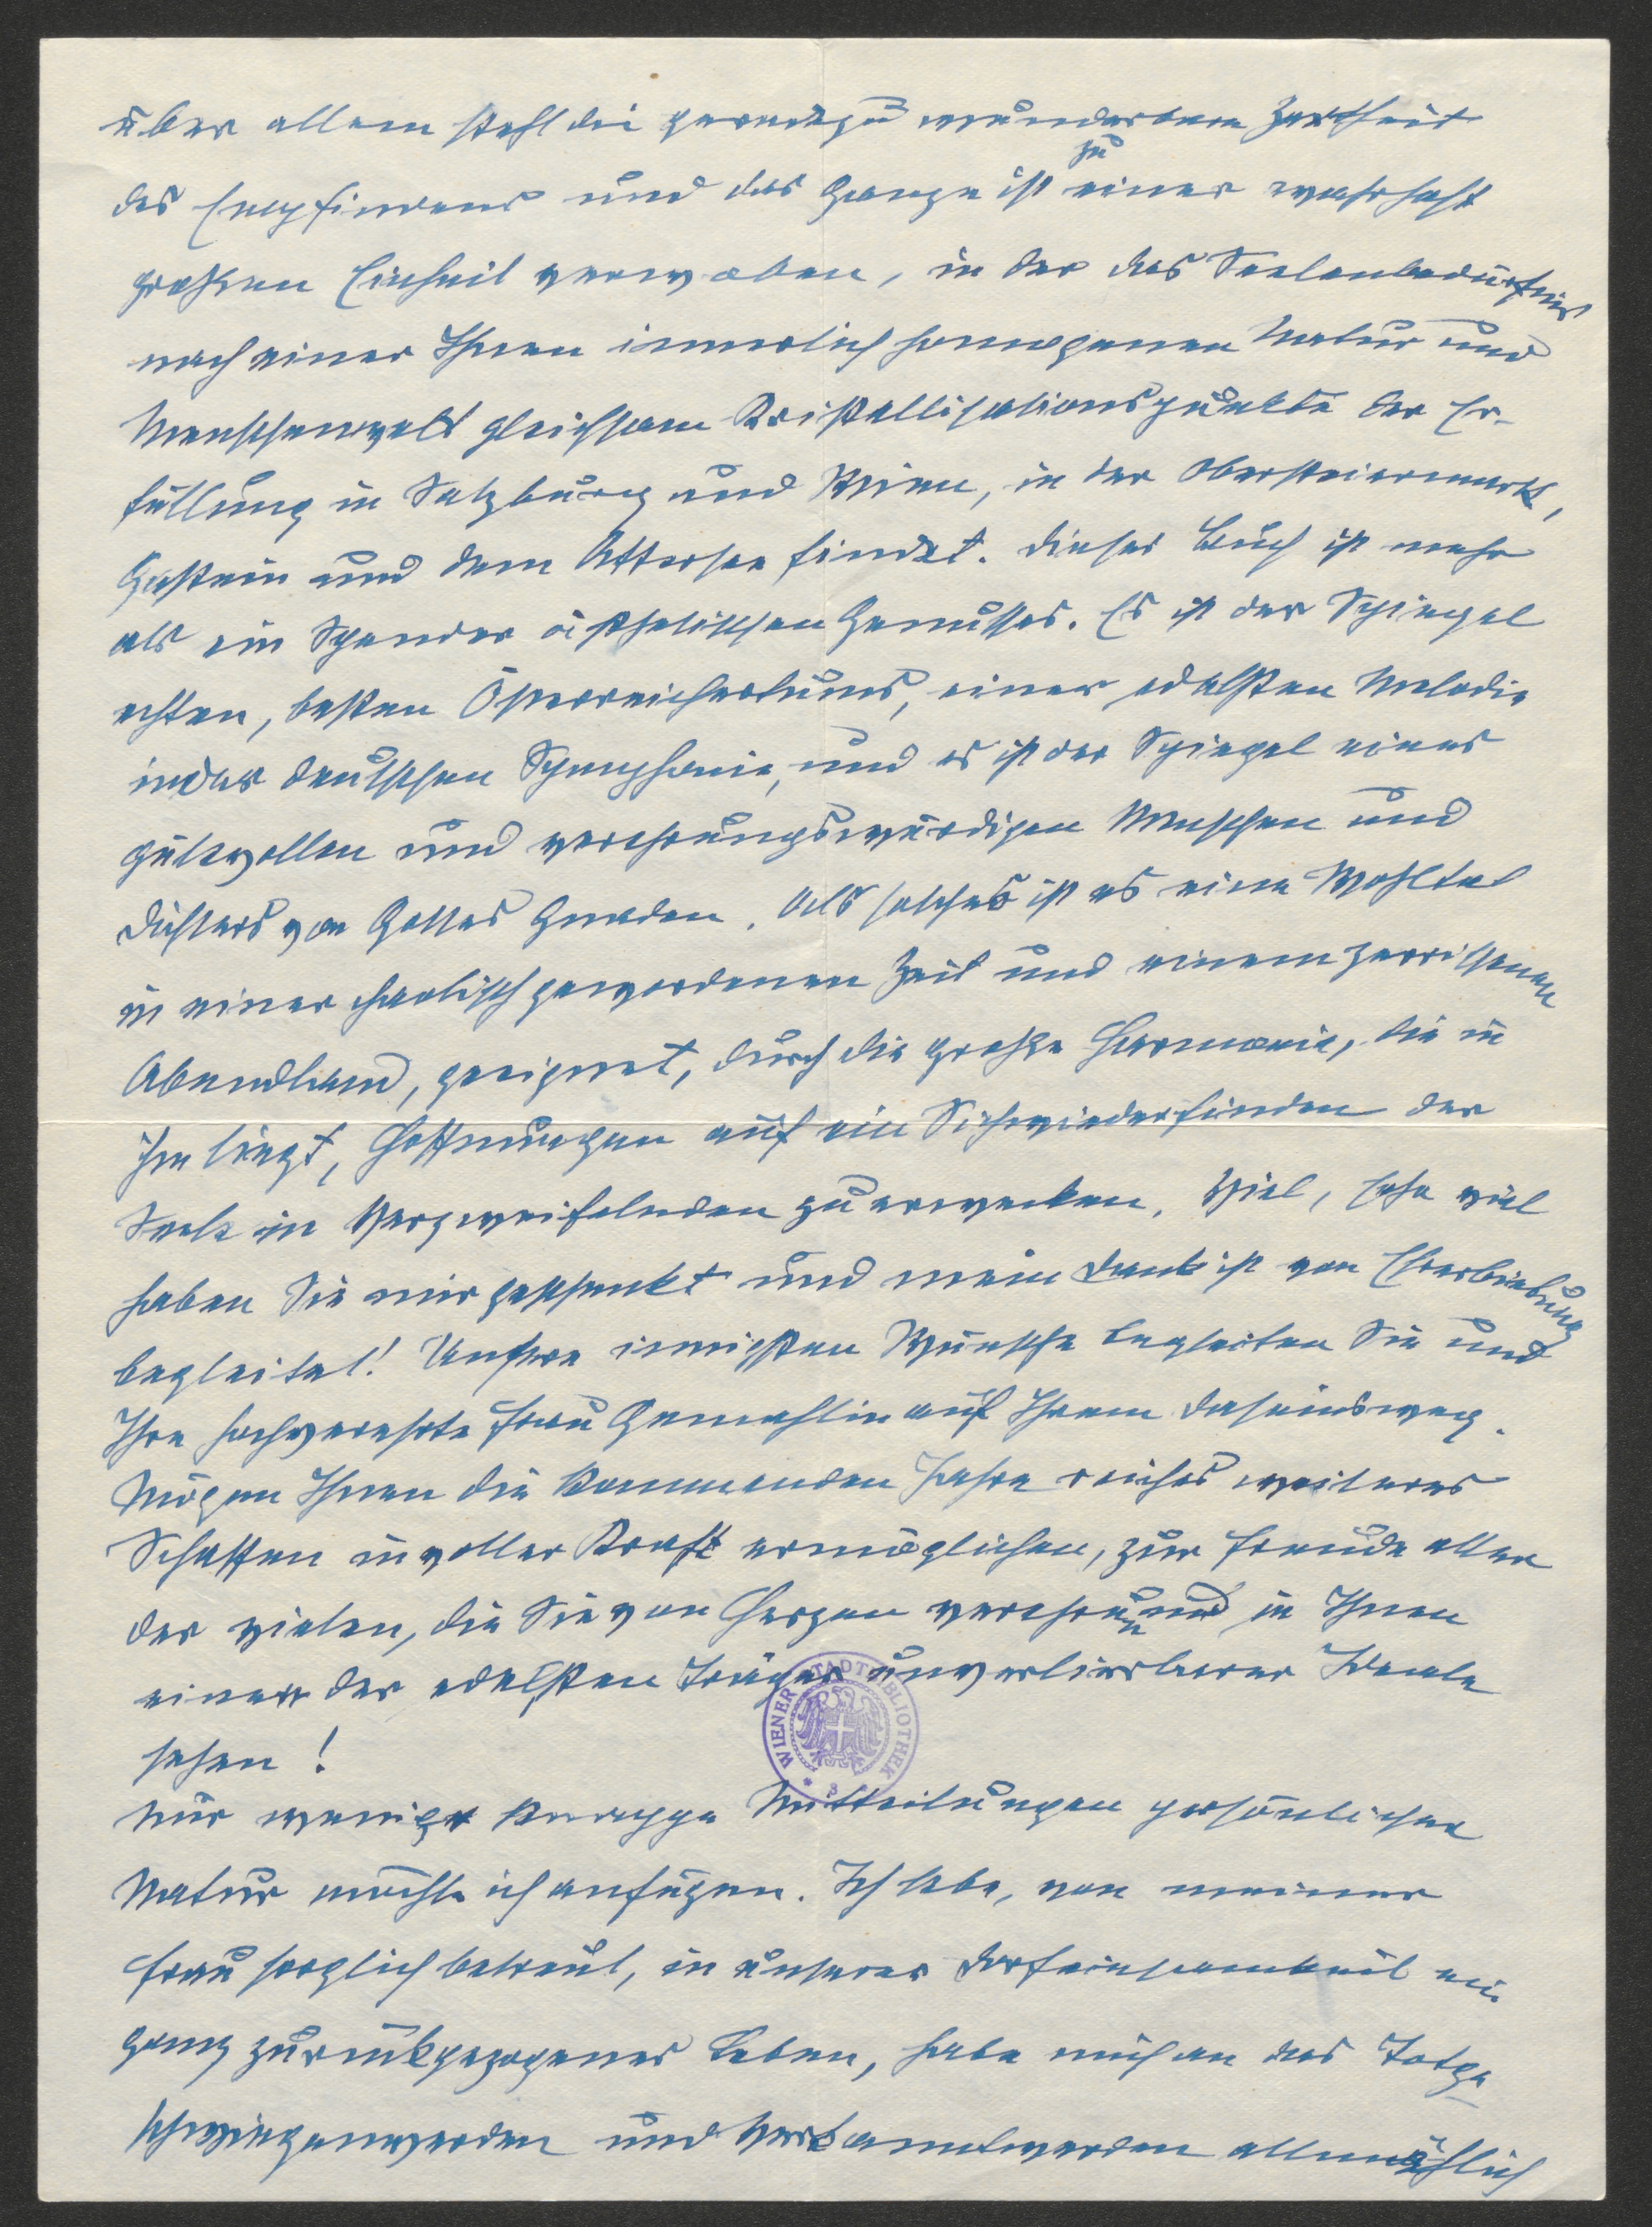 über allem steht die geradezu wunderbare Zartheit
des Empfindens und das Ganze ist zu einer wahrhaft
großen Einheit verwoben, in der das Seelenbedürfnis
nach einer Ihnen innerlich homogenen Natur und
Menschenwelt gleichsam Kristallisationspunkte der Er-
füllung in Salzburg und Wien, in der Obersteiermark,
Gastein und dem Attersee findet. Dieses Buch ist mehr
als ein Spender ästhetischen Genusses. Es ist der Spiegel
echten, besten Österreichertums, einer edelsten Melodie
in der deutschen Symphonie, und es ist der Spiegel eines
gütevollen und verehrungswürdigen Menschen und
Dichters von Gottes Gnaden. Als solches ist es eine Wohltat
in einer chaotisch gewordenen Zeit und einem zerrissenen
Abendland, geeignet, durch die große Harmonie, die in
ihm liegt, Hoffnungen auf ein Sichwiederfinden der
Seele in Verzweifelnden zu erwecken. Viel, sehr viel
haben Sie mir geschenkt und mein Dank ist von Ehrerbietung
begleitet! Unsere innigsten Wünsche begleiten Sie und
Ihre hochverehrte Frau Gemahlin auf Ihrem Daseinsweg.
Mögen Ihnen die kommenden Jahre reiches weiteres
Schaffen in voller Kraft ermöglichen, zur Freude aller
der vielen, die Sie von Herzen verehren und in Ihnen
einen der edelsten Träger unverlierbarer Ideale
sehen!
WIENER STADTBIBLIOTHEK
Nur wenige knappe Mitteilungen persönlicher
Natur möchte ich anfügen. Ich lebe, von meiner
Frau sorglich betreut, in unserer Dorfeinsamkeit ein
ganz zurückgezogenes Leben, habe mich an das Totge-
schwiegenwerden und Verkanntwerden allmählich